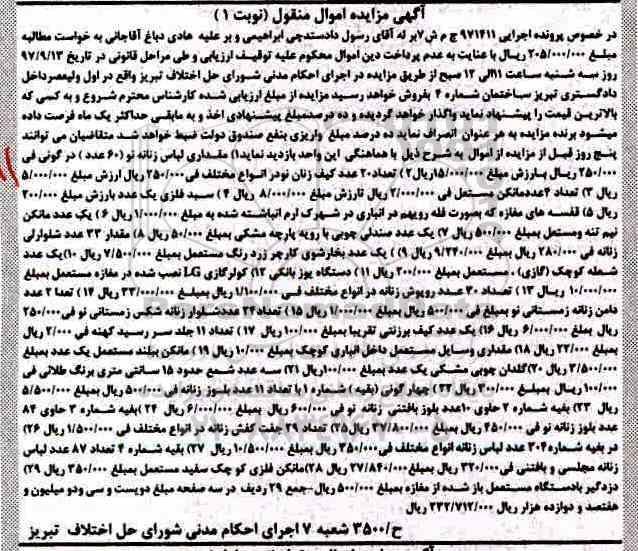 آگهی مزایده اموال منقول (نوبت ۱)
در خصوص پرونده اجرایی ۹۷۱۴۱۱ ج م ش ۷بر له آقای رسول دادستدچی ابراهیمی و بر علیه هادی دباغ آقاجانی به خواست مطالبه
مبلغ ۲۰۵/۰۰۰/۰۰۰ ریال با عنایت به عدم پرداخت دین اموال محکوم علیه توقیف ارزیابی و طی مراحل قانونی در تاریخ ۹۷/۹/۱۳
روز سه شنبه ساعت ۱۱الی ۱۲ صبح از طریق مزایده در اجرای احکام مدنی شورای حل اختلاف تبریز واقع در اول ولیعصرداخل
دادگستری تبریز ساختمان شماره ۴ بفروش خواهد رسید مزایده از مبلغ ارزیابی شده کارشناس محترم شروع و به کسی که
بالاترین قیمت را پیشنهاد نماید واگذار خواهد گردیده و ده درصدمبلغ پیشنهادی اخذ و به مابقی حداکثر یک ماه فرصت داده
میشود برنده مزایده به هر عنوان انصراف نماید ده درصد مبلغ واریزی بنفع صندوق دولت ضبط خواهد شد متقاضیان می توانند
پنج روز قبل از مزایده از اموال به شرح ذیل با هماهنگی این واحد بازدید نمایند۱) مقداری لباس زنانه نو (۶۰ عدد ) در گونی فی
۲۵۰/۰۰۰ ریال بارزش مبلغ ۱۵/۰۰۰/۰۰۰ریال۲ ) تعداد۲۰ عدد کیف زنان نودر انواع مختلف فی۲۵۰/۰۰۰ ریال ارزش مبلغ ۵/۰۰۰/۰۰۰
ریال ۳) تعداد ۴عددمانکن مستعمل فی ۲/۰۰۰/۰۰۰ ریال بارزش مبلغ ۸/۰۰۰/۰۰۰ ریال ۴ ) سبد فلزی یک عدد بارزش مبلغ ۲۰۰/۰۰۰
ریال ۵) قفسه های مغازه که بصورت فله رویهم در انباری در شهرک ارم انباشته شده به مبلغ ۱/۰۰۰/۰۰۰ ریال ۶ ) یک عدد مانکن
نیم تنه ومستعل بمبلغ ۵۰۰/۰۰۰ ریال ۷) یک عدد صندلی چوبی با رویه پارچه مشکی بمبلغ ۵۰/۰۰۰ ریال ۸) مقدار ۳۳ عدد شلوارلی
زنانه فی ۲۸۰/۰۰۰ ریال بمبلغ ۹/۲۴۰/۰۰۰ ریال ۹ ) یک عدد بخارشوی کارچر زرد رنگ مستعمل بمبلغ ۷/۵۰۰/۰۰۰ ریال ۱۰)یک عدد
شعله کوچک (گازی) ، مستعمل بمبلغ ۲۰۰/۰۰۰ ریال ۱۱ ) دستگاه پوز بانکی ۱۲) کولرگازی LG نصب شده در مغازه مستعمل بمبلغ
۱۰/۰۰۰/۰۰۰ ریال ۱۳ ) تعداد ۳۰ عدد روپوش زنانه در انواع مختلف فی ۱/۱۰۰/۰۰۰ ریال بمبلغ ۳۳/۰۰۰/۰۰۰ ریال ۱۴ ) تعدا ۲ عدد
دامن زنانه زمستانی نو بمبلغ فی ۵۰۰/۰۰۰ ریال بمبلغ ۱/۰۰۰/۰۰۰ ریال ۱۵ ) تعداد۲۴ عددشلوار زنانه شکس زمستانی نو فی۲۵۰/۰۰۰
ریال بمبلغ ۶/۰۰۰/۰۰۰ ریال ۱۶) یک عدد کیف برزنتی تقریبا بمبلغ ۱۰۰/۰۰۰ ریال ۱۷ ) تعداد ۱۱ جلد سر رسید کهنه فی ۲/۰۰۰ ریال
بمبلغ ۲۲/۰۰۰ ریال ۱۸) مقداری وسایل مستعمل داخل انباری کوچک بمبلغ ۱۰/۰۰۰ ریال ۱۹ ) مانکن ببلند مستعمل یک عدد بمبلغ
۳/۵۰۰/۰۰۰ ریال ۲۰)گلدان چوبی مشکی یک عدد بمبلغ ۱۰۰/۰۰۰ریال ۲۱) سه عدد شمع حدود ۱۵ سانتی متری برنگ طلائی فی
۱۰۰/۰۰۰ ریال بمبلغ ۳۰۰/۰۰۰ ریال ۲۲) چهار گونی (بقیه ) شماره ۱ با تعداد ۱۱ عدد بلوز زنانه فی ۵۰۰/۰۰۰ ریال بمبلغ ۵/۵۰۰/۰۰۰
ریال ۲۳) بقیه شماره ۲ حاوی ۱۰عدد بلوز بافتنی زنانه نو فی ۶۰۰/۰۰۰ ریال بمبلغ ۶/۰۰۰/۰۰۰ ریال ۲۴ )بقیه شماره ۳ حاوی ۸۴
عدد بلوز زنانه نو فی ۴۵۰/۰۰۰ ریال بمبلغ ۳۷/۸۰۰/۰۰۰ ریال۲۵) تعداد ۲۹ جفت کفش زنانه در انواع مختلف فی ۱/۵۰۰/۰۰۰ ریال ۲۶)
در بقیه شماره۳۰۴ عدد لباس زنانه انواع مختلف فی۳۵۰/۰۰۰ ریال بمبلغ ۱۰/۵۰۰/۰۰۰ ریال ۲۷) بقیه شماره ۴ تعداد ۸۷ عدد لباس
زنانه مجلسی و بافتنی فی۳۲۰/۰۰۰ ریال بمبلغ ۲۷/۸۴۰/۰۰۰ ریال ۲۸)مانکن فلزی کو چک سفید مستعمل بمبلغ ۳۵۰/۰۰۰ ریال ۲۹)
دزدگیر بادستگاه مستعمل باز شده از مغازه بمبلغ ۵۰۰/۰۰۰ ریال-جمع ۲۹ ردیف در سه صفحه مبلغ دویست و سی ودو میلیون و
هفتصد و دوازده هزار ریال ۲۳۲/۷۱۲/۰۰۰ ریال
ح/۳۵۰۰ شعبه ۷ اجرای احکام مدنی شورای حل اختلاف تبریز